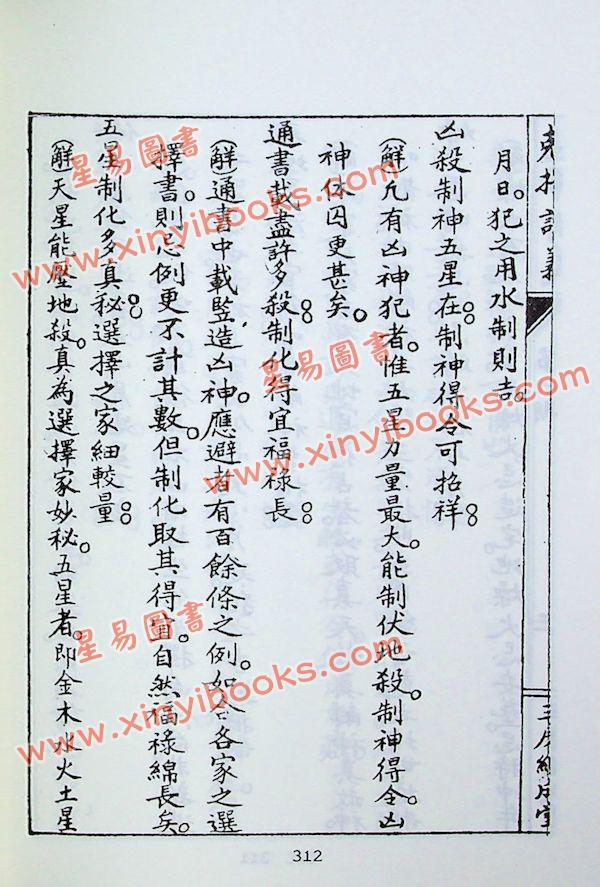 月日。犯之用水制則吉。
凶殺制神五星在。制神得令可招祥。
（解）凡有凶神犯者。惟五星力量最大。能制伏地殺。制神得令。凶
神休囚更甚矣。
通書載盡許多殺。制化得宜福祿長。
（解）通書中載竪造凶神。應避者有百餘條之例。如合各家之選
擇書。則忌例更不計其數。但制化取其得宜。自然福祿綿長矣。
五星制化多真秘。選擇之家細較量。
（解）天星能壓地殺。真為選擇家妙秘。五星者。即金木水火土星
312
星易圖書
www.xinyibooks.com
星易圖書
www.xinyibooks.com
星易圖書
www.xinyibooks.com